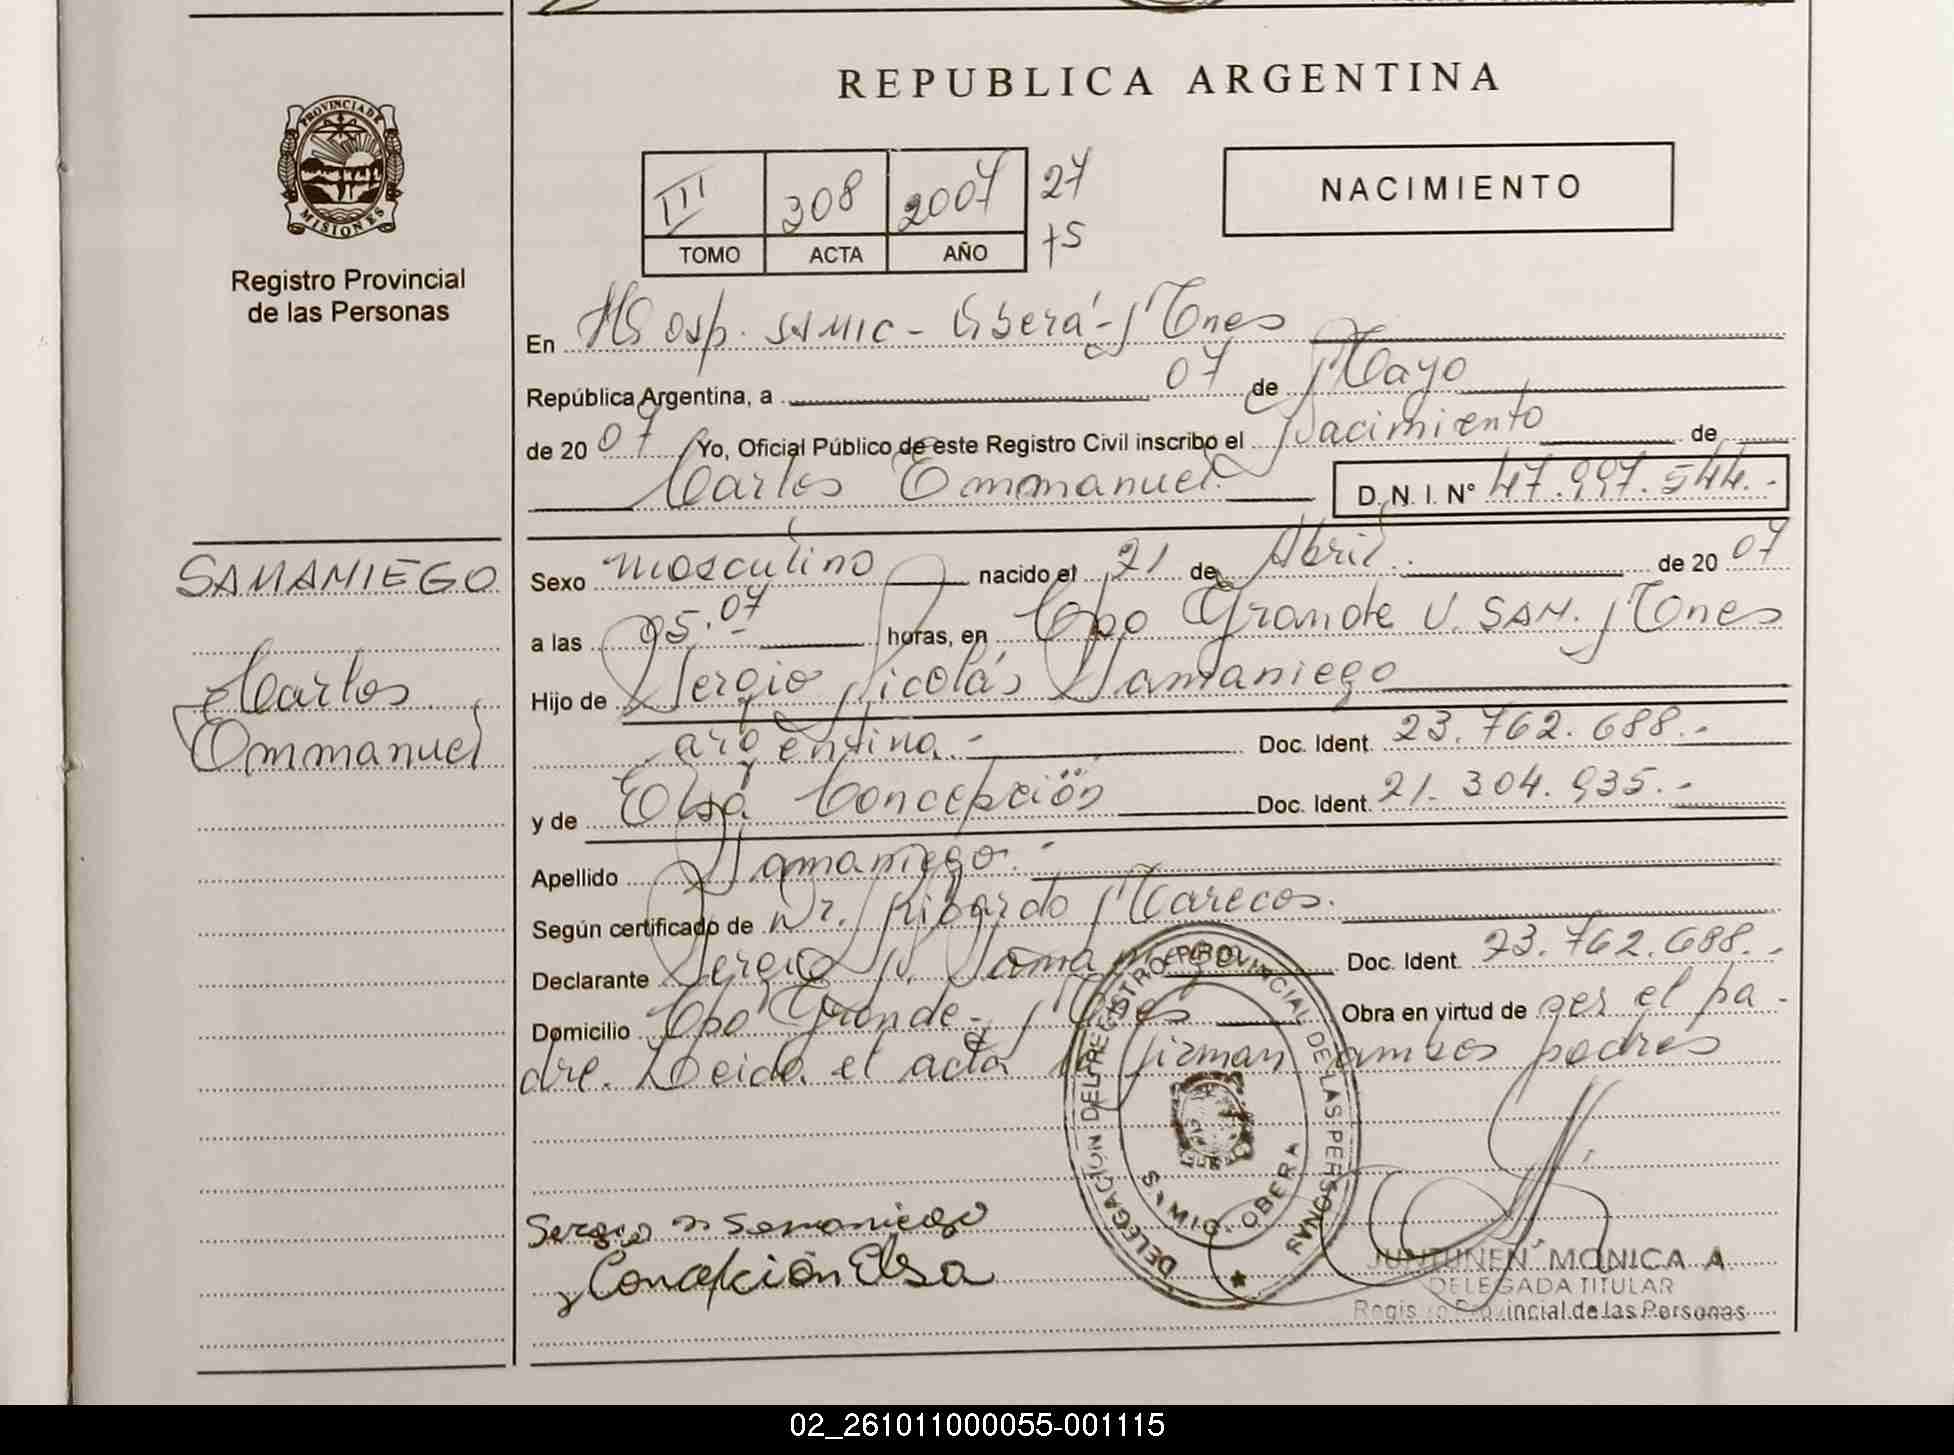 REPUBLICA ARGENTINA
PROVINCIA DE
MISIONES
Registro Provincial
de las Personas
III 308 2007 27
TOMO ACTA AÑO +5
NACIMIENTO
En Hosp. SAMIC - Oberá - Mnes
República Argentina, a 07 de Mayo
de 20 07 Yo, Oficial Público de este Registro Civil inscribo el Nacimiento de
Carlos Emmanuel D.N.I. N° 47.997.544.-
SAMANIEGO
Carlos
Emmanuel
Sexo masculino nacido el 21 de Abril de 20 07
a las 05.07 horas, en Cpo Grande U. SAM. Mnes
Hijo de Sergio Nicolás Samaniego
argentina.- Doc. Ident. 23.762.688.-
y de Elsa Concepción Doc. Ident. 21.304.935.-
Apellido Samaniego.-
Según certificado de Dr. Ricardo Marecos.
Declarante Sergio N. Samaniego Doc. Ident. 23.762.688.-
Domicilio Cpo Grande-, Mnes Obra en virtud de ser el pa-
dre. Leida el acta la firman ambos padres
DELEGACIÓN DEL REGISTRO PROVINCIAL DE LAS PERSONAS
OBERA
Sergio N Samaniego
Concepción Elsa
JUNTUNEN, MONICA A
DELEGADA TITULAR
Registro Provincial de las Personas
02_261011000055-001115